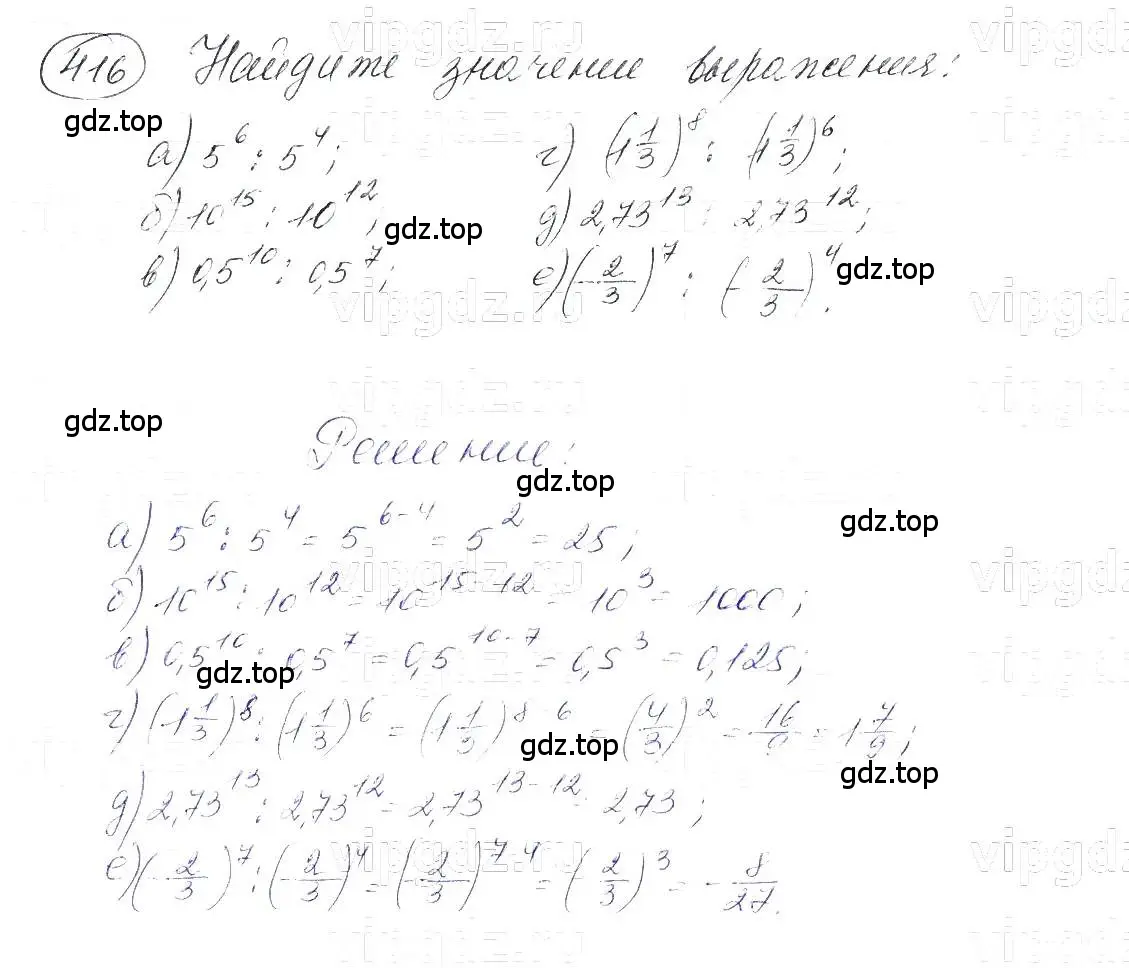 416 Найдите значение выражения:
а) 5^6 : 5^4; г) (1 1/3)^8 : (1 1/3)^6;
б) 10^15 : 10^12; д) 2,73^13 : 2,73^12;
в) 0,5^10 : 0,5^7; е) (-2/3)^7 : (-2/3)^4.
Решение:
а) 5^6 : 5^4 = 5^6-4 = 5^2 = 25;
б) 10^15 : 10^12 = 10^15-12 = 10^3 = 1000;
в) 0,5^10 : 0,5^7 = 0,5^10-7 = 0,5^3 = 0,125;
г) (1 1/3)^8 : (1 1/3)^6 = (1 1/3)^8-6 = (4/3)^2 = 16/9 = 1 7/9;
д) 2,73^13 : 2,73^12 = 2,73^13-12 = 2,73;
е) (-2/3)^7 : (-2/3)^4 = (-2/3)^7-4 = (-2/3)^3 = -8/27.
gdz.top
gdz.top
gdz.top
gdz.top
gdz.top
gdz.top
gdz.top
gdz.top
gdz.top
vipgdz.ru
vipgdz
vipgdz.ru
vipgdz
vipgdz.ru
vipgdz
vipgdz.ru
vipgdz
vipgdz.ru
vipgdz
vipgdz.ru
vipgdz
vipgdz.ru
vipgdz
vipgdz.ru
vipgdz